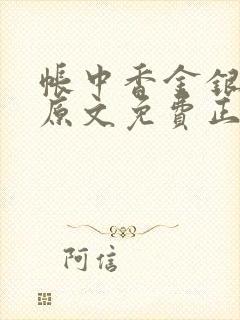 帳中香金銀
原文免費正
阿信